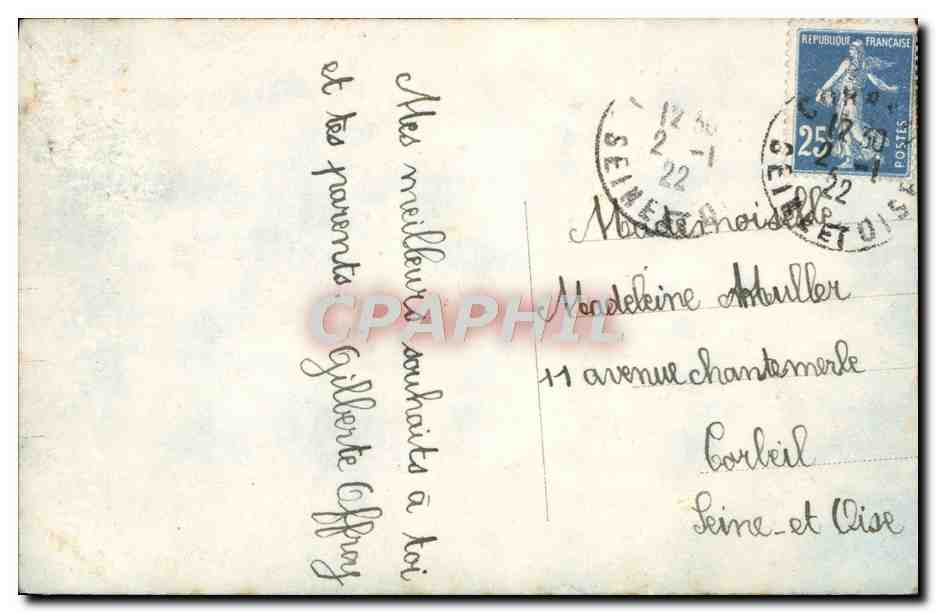 Mes meilleurs souhaits à toi
et tes parents Gilberte Affroy
RÉPUBLIQUE FRANÇAISE
25
POSTES
12 30
2 -1
22
SEINE ET OISE
12 30
2 -1
22
SEINE ET OI
Mademoiselle
Madeleine Muller
11 avenue chantemerle
Corbeil
Seine-et Oise
CPAPHIL